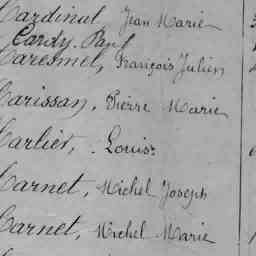 Cardinal Jean Marie
Cardy Paul
Caresmel, François Julien
Carissan, Pierre Marie
Carlier, Louis
Carnet, Michel Joseph
Carnet, Michel Marie